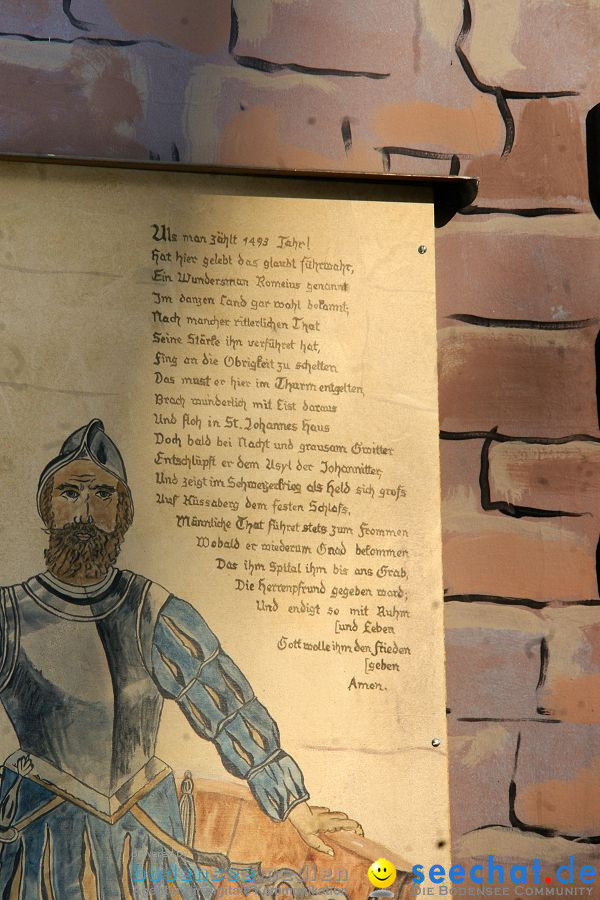 Als man zählt 1493 Jahr!
Hat hier gelebt das glaubt führwahr,
Ein Wundersman Romeius genannt
Im danzen Land gar wohl bekannt;
Nach mancher ritterlichen That
Seine Stärke ihn verführet hat,
Fing an die Obrigkeit zu schelten
Das must er hier im Thurm entgelten,
Brach wunderlich mit List daraus
Und floh in St. Johannes Haus
Doch bald bei Nacht und grausam Gwitter
Entschlüpft er dem Asyl der Johannitter,
Und zeigt im Schweizerkrieg als Held sich groß
Auf Küssaberg dem festen Schloß,
Männliche That führet stets zum Frommen
Wobald er wiederum Gnad bekommen
Das ihm Spital ihm bis ans Grab,
Die Herrenpfrund gegeben ward;
Und endigt so mit Ruhm
[und Leben
Gott wolle ihm den Frieden
[geben
Amen.
seechat.de
Die Bodensee Community